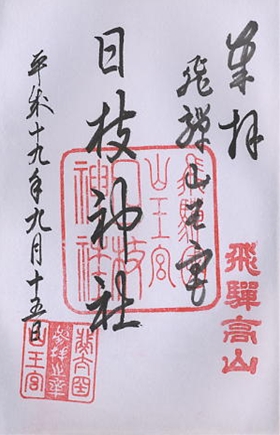 奉拝
飛驒高山
飛驒山王宮
日枝神社
平成十九年九月十五日
山王宮
日枝
神社